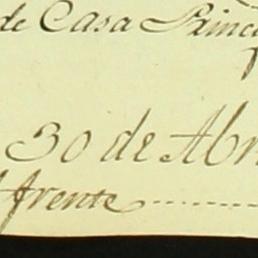 de Casa Princ
30 de Abr
frente